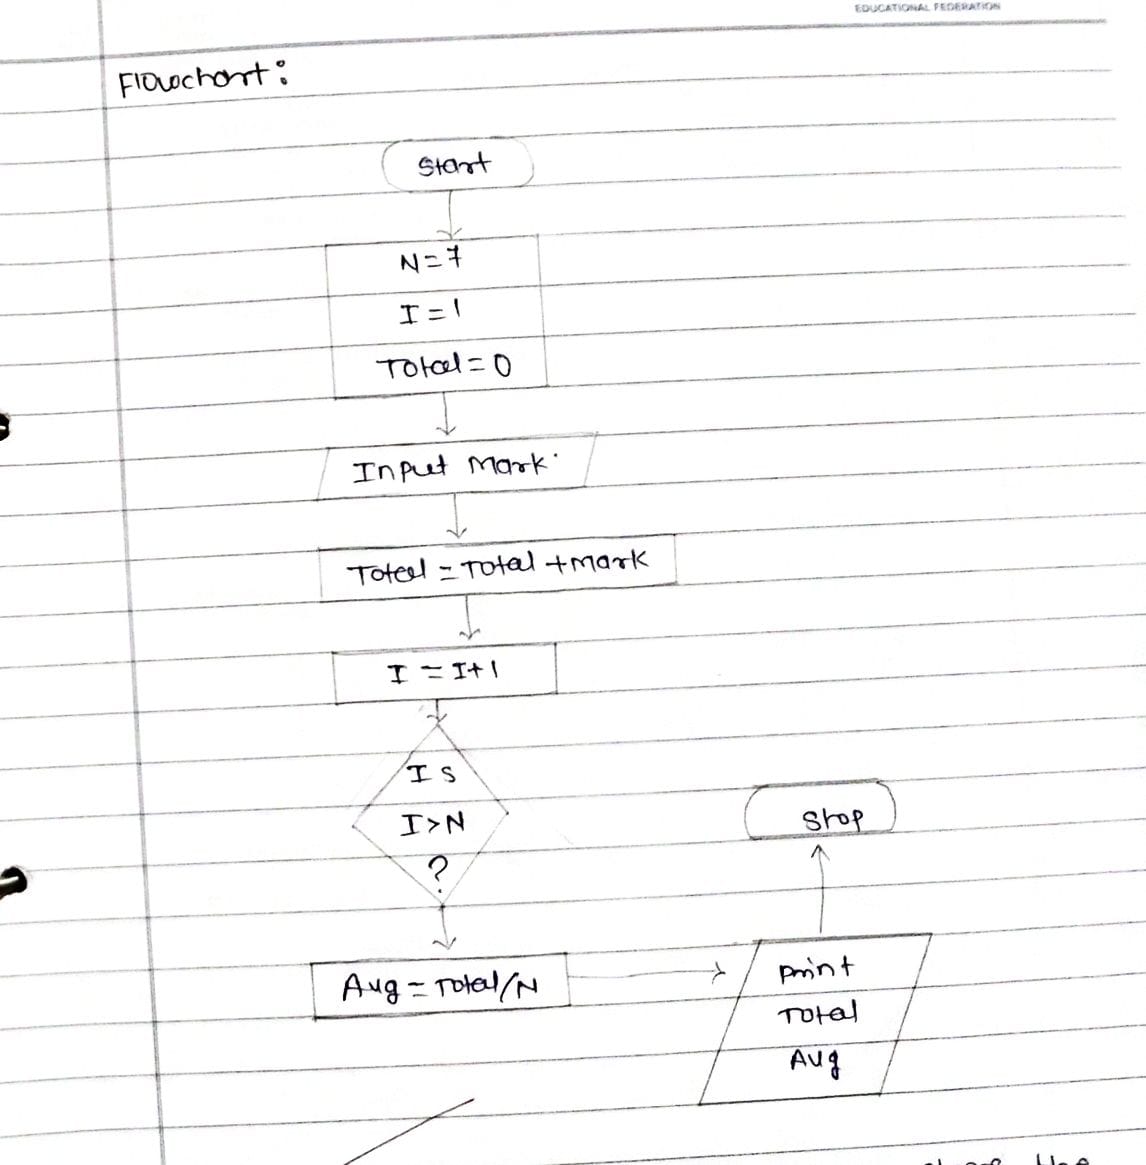 EDUCATIONAL FEDERATION
Flowchart:
Start
N=7
I=1
Total=0
Input Mark.
Total = Total + Mark
I = I+1
Is
I>N
?
Stop
Avg = Total/N
print
Total
Avg
the